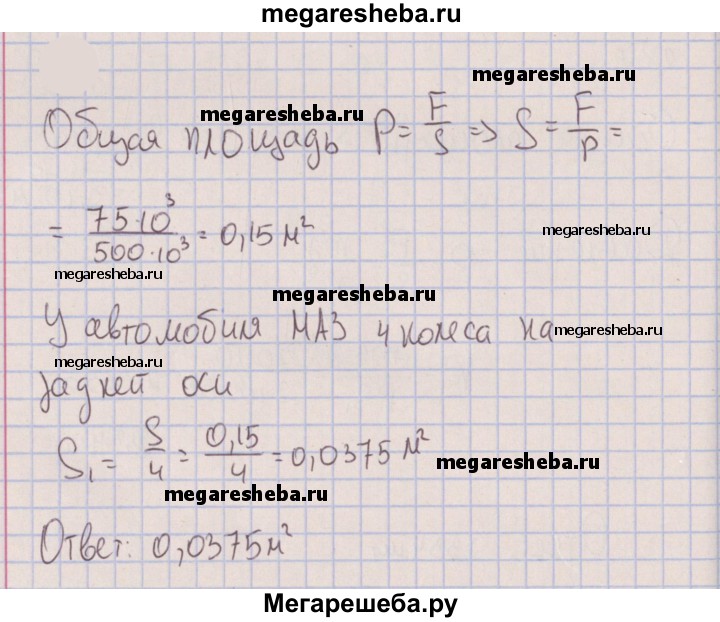 megaresheba.ru
megaresheba.ru
megaresheba.ru
Общая площадь P = F/S => S = F/P =
= 75·10³/500·10³ = 0,15 м²
megaresheba.ru
megaresheba.ru
megaresheba.ru
У автомобиля МАЗ 4 колеса на
megaresheba.ru
megaresheba.ru
задней оси
S₁ = S/4 = 0,15/4 = 0,0375 м²
megaresheba.ru
megaresheba.ru
Ответ: 0,0375 м²
Мегарешеба.ру